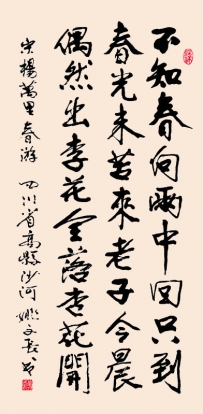 不知春向雨中回只到
春光未苦來老子今晨
偶然出李花全落杏花開
宋楊萬里春游 四川省高縣沙河